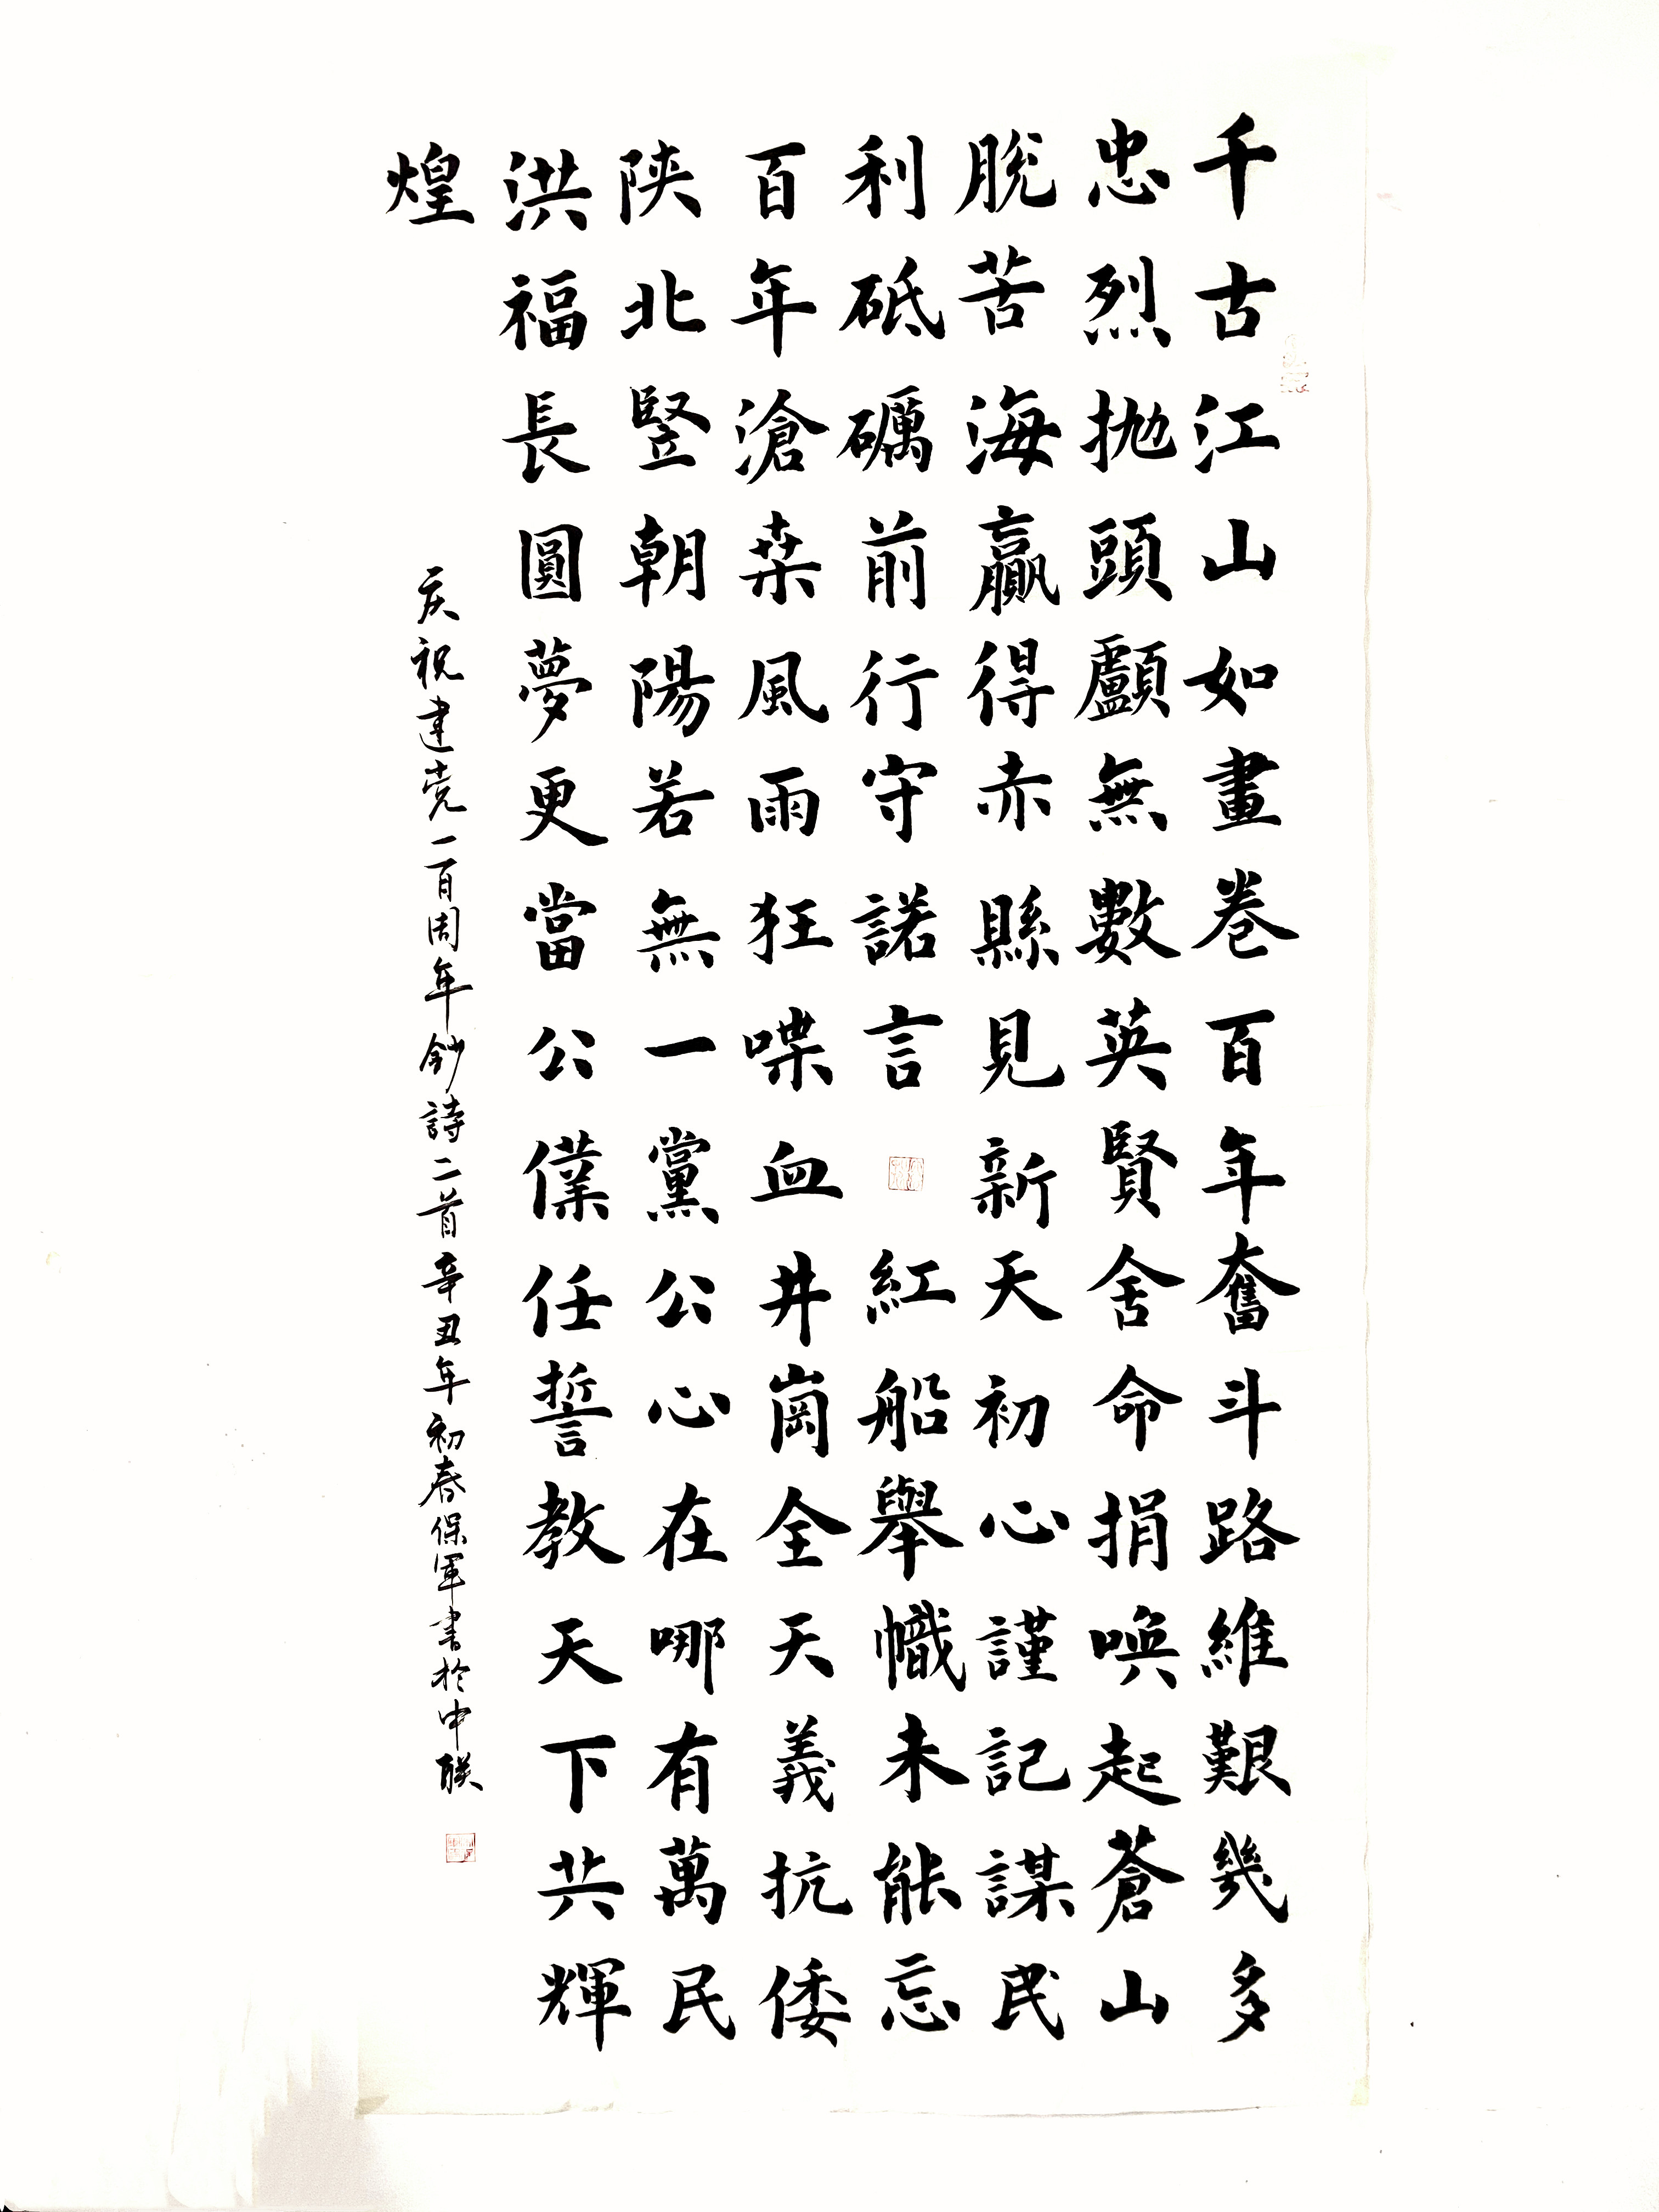 千古江山如畫卷百年奮斗路維艱幾多
忠烈抛頭顱無數英賢舍命捐喚起蒼山
脫苦海贏得赤縣見新天初心謹記謀民
利砥礪前行守諾言 紅船舉幟未能忘
百年滄桒風雨狂喋血井崗全天義抗倭
陝北竪朝陽若無一黨公心在哪有萬民
洪福長圓夢更當公僕任誓教天下共輝
煌
庆祝建党一百周年鈔詩二首辛丑年初春保軍書於中联